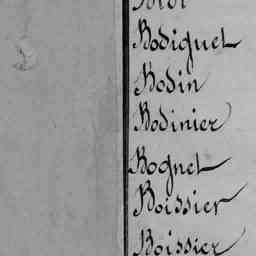 Bodiguel
Bodin
Bodinier
Bognet
Boissier
Boissier